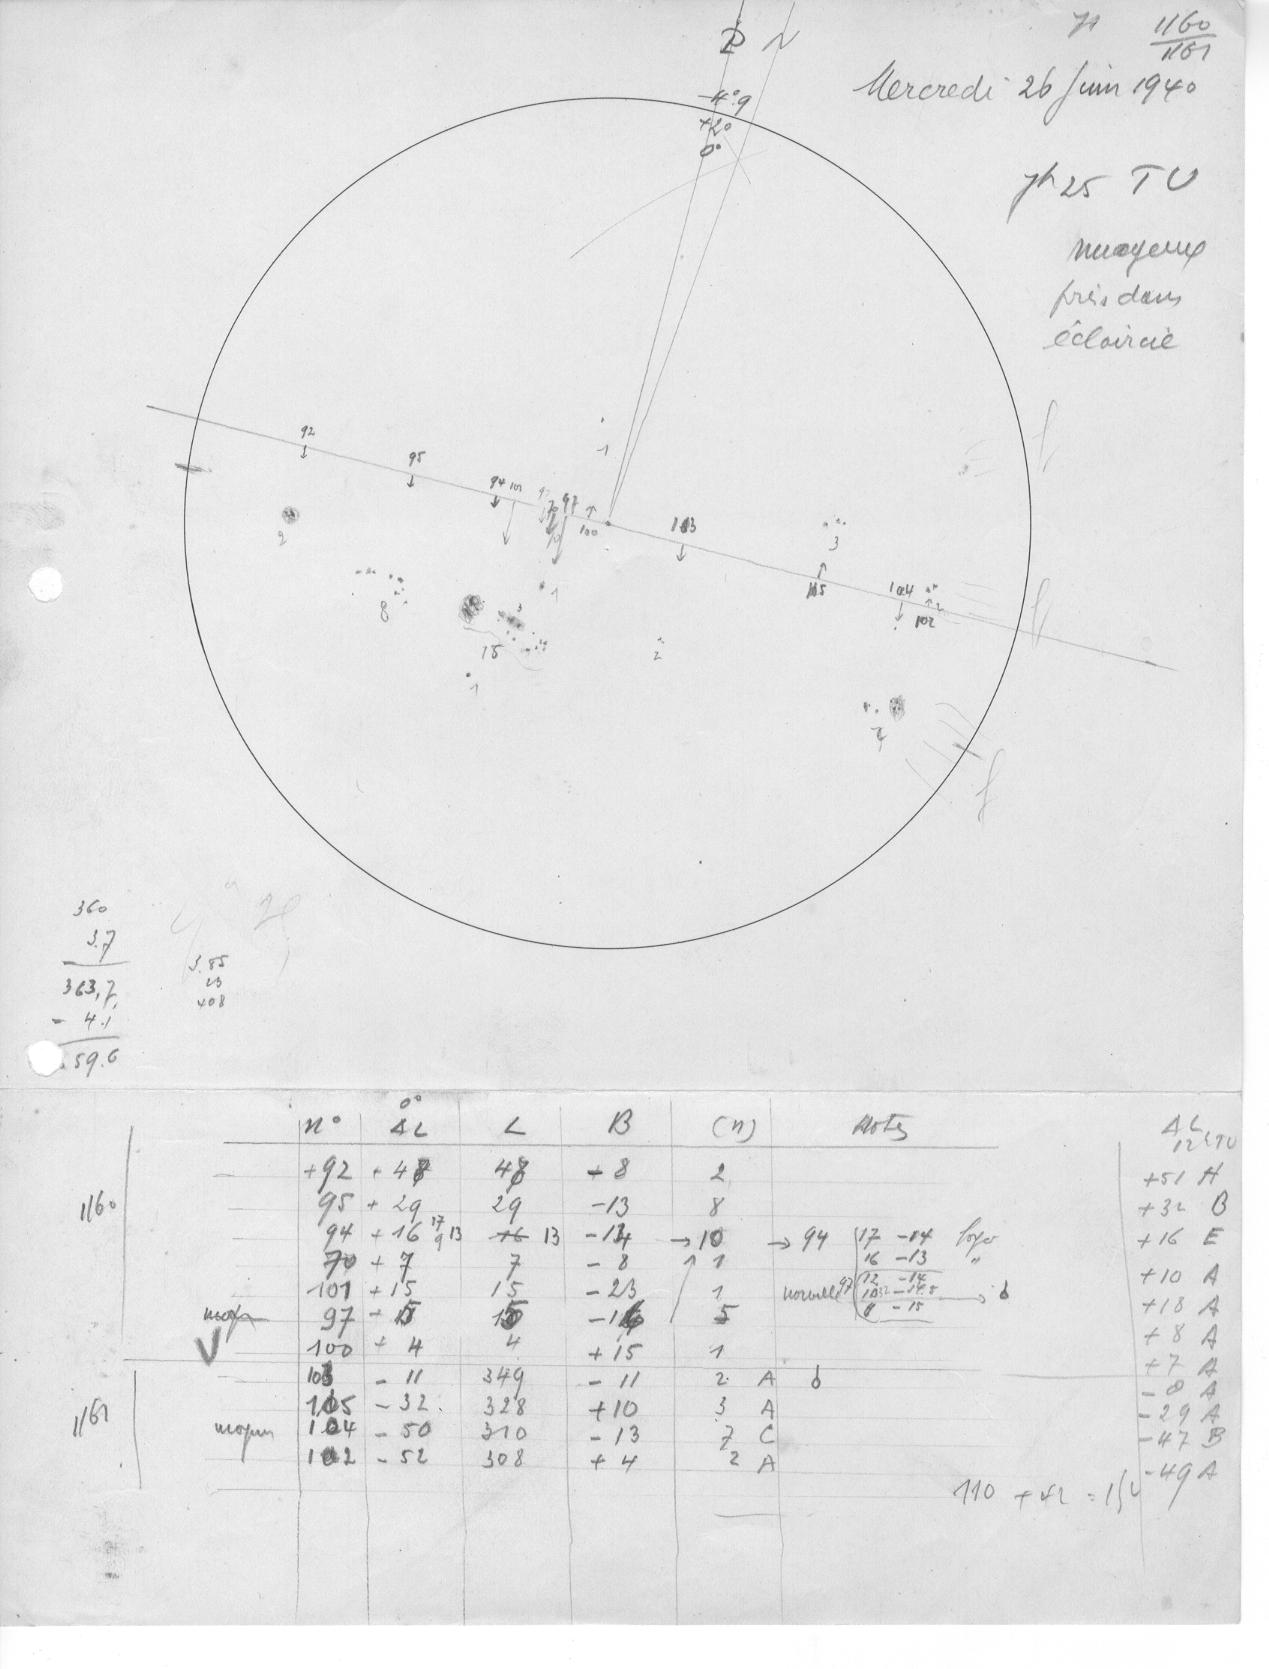 1160
1161
Mercredi 26 Juin 1940
P N
-4°9
+2°
0°
7h25 TU
nuageux
pris dans
éclaircie
1
92
95
94 101
97
100
103
3
105
104
102
2
2
8
1
3
15
2
1
7
f
f
f
360
3.7
363,7
- 4.1
59.6
3.85
23
408
0°
n° ΔL L B (n) Notes ΔL
12h TU
1160
+92 + 48 48 + 8 2 +51 H
95 + 29 29 -13 8 +32 B
94 + 16 17 9 13 16 13 -14 → 10 → 94 17 -14 +16 E
16 -13 "
70 + 7 7 - 8 1 +10 A
12 -14
101 + 15 15 - 23 1 +18 A
97 5 + 8 A
8 -15
100 + 4 4 +15 1 +7 A
1161
103 - 11 349 - 11 2 A -8 A
105 - 32 328 +10 3 A -29 A
104 - 50 310 - 13 7 C -47 B
102 - 52 308 + 4 2 A -49 A
110 + 42 = 152